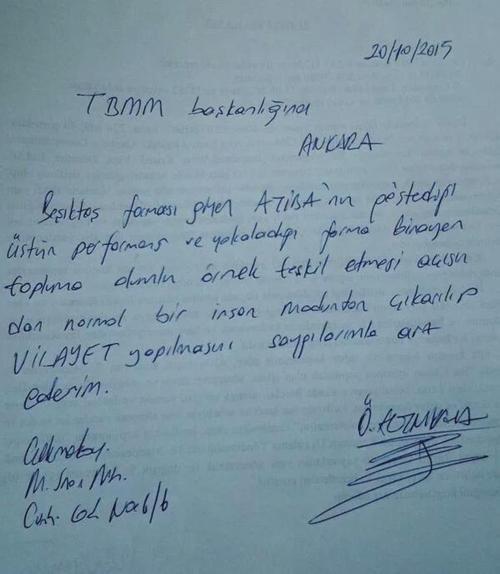 20/10/2015
TBMM başkanlığına
ANKARA
Beşiktaş forması giyen ATIBA'nın göstediği
üstün performans ve yakaladığı forma binayen
topluma olumlu örnek teşkil etmesi açısın
dan normal bir insan modundan çıkarılıp
VİLAYET yapılmasını saygılarımla arz
ederim.
Ö.
M.
No:6/6